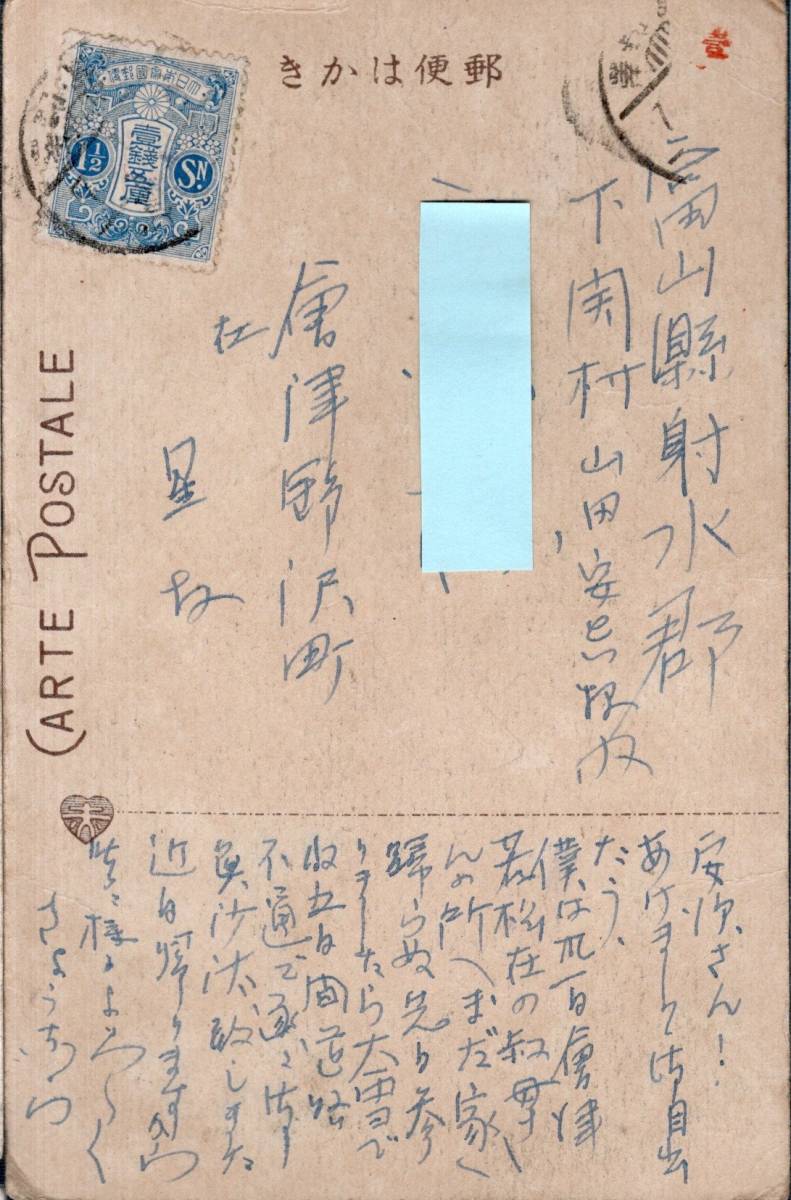 郵便はかき
大日本帝國郵便
壹錢五厘
1½
SN.
CARTE POSTALE
富山縣射水郡
下関村 山田安 様内
會津野沢町
在
星
安次さん!
あけまして御目出
たう、
僕は 日會津
若松在の叔母さ
んの所へまだ家へ
歸らぬ先り参
りましたら大雪で
四五日間道路
不通で遂に御
無沙汰致しました
近日帰ります
皆々様によろしく
さようなら